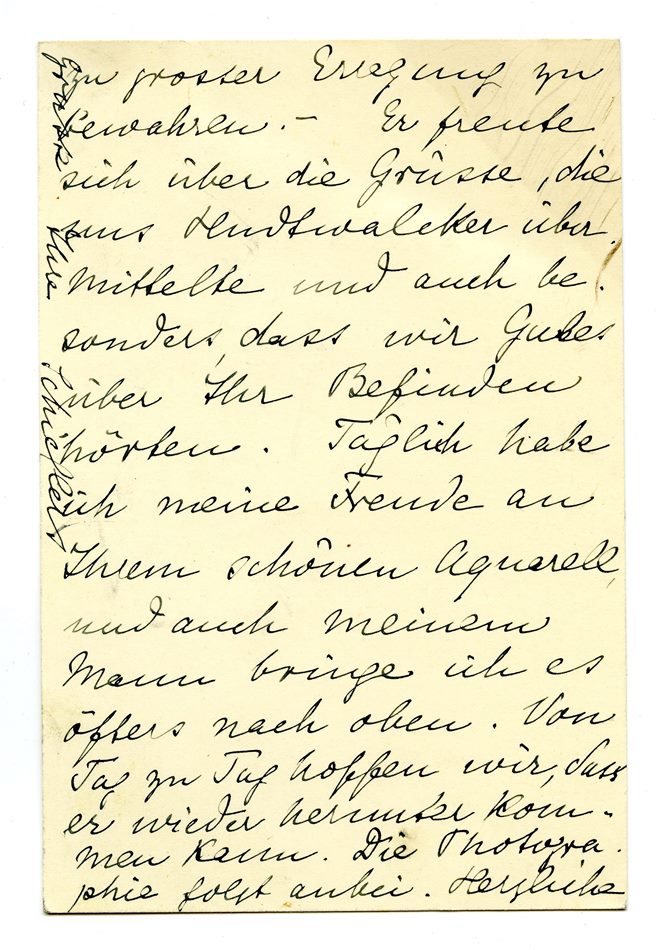 zu grosser Erregung zu
bewahren. – Er freute
sich über die Grüsse, die
uns Hudtwalcker über
mittelte und auch be.
sonders, dass wir Gutes
über Ihr Befinden
hörten. Täglich habe
ich meine Freude an
Ihrem schönen Aquarell,
und auch meinem
Mann bringe ich es
öfters nach oben. Von
Tag zu Tag hoffen wir, dass
er wieder herunter kom-
men kann. Die Photogra.
phie folgt anbei. Herzliche
Grüsse Ihre Schieflers